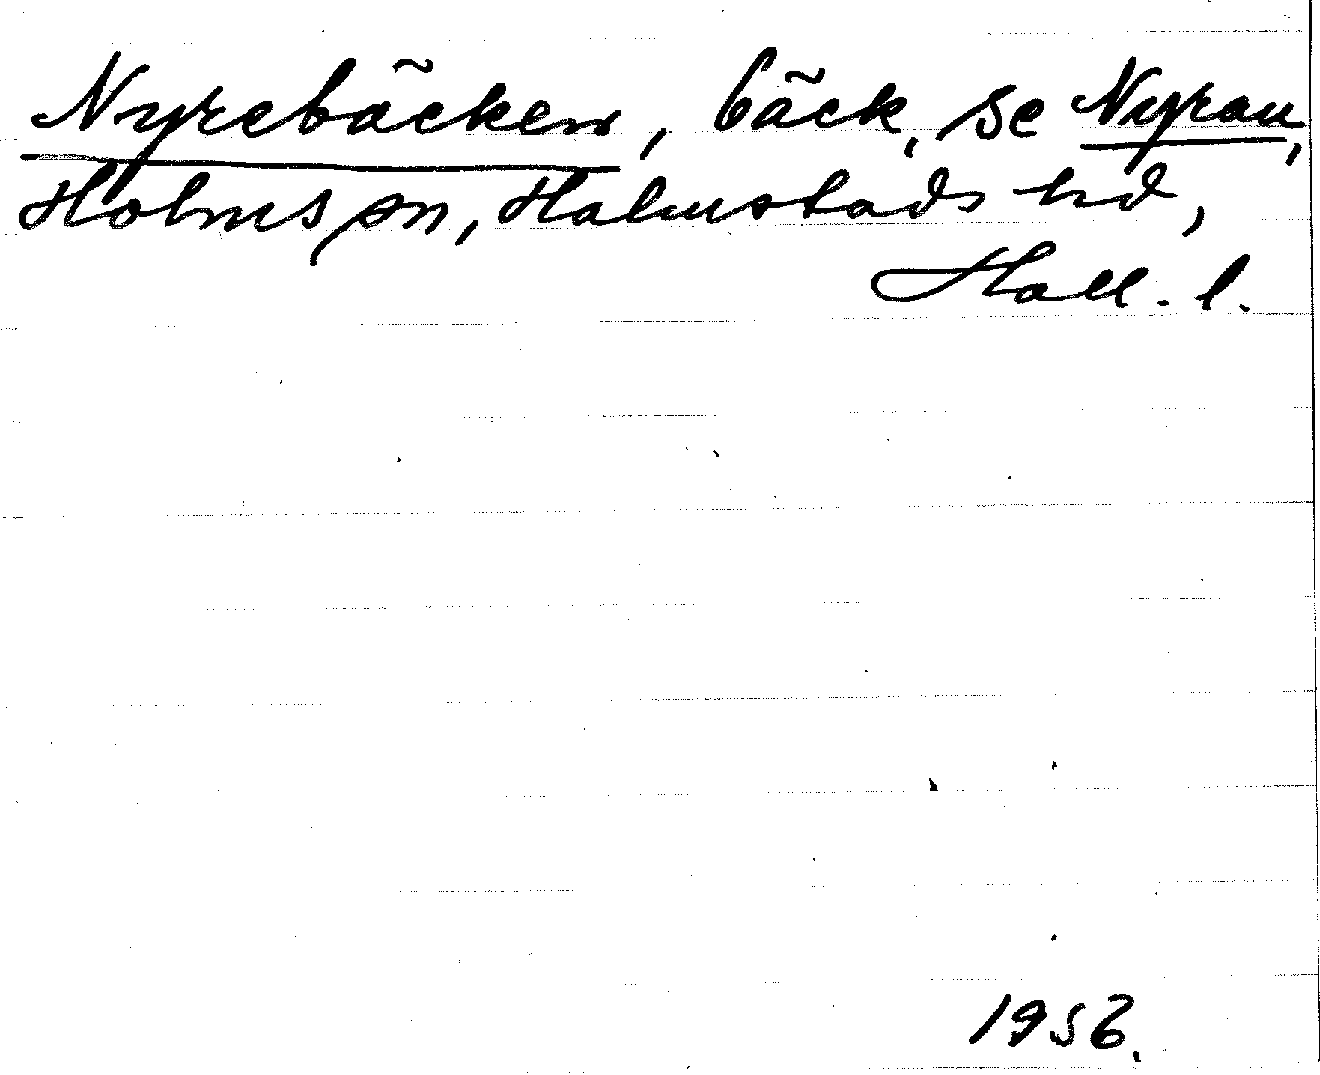 Nyrebäcken, bäck, se Nyran,
Holms sn, Halmstads hd,
Hall. l.
1956.